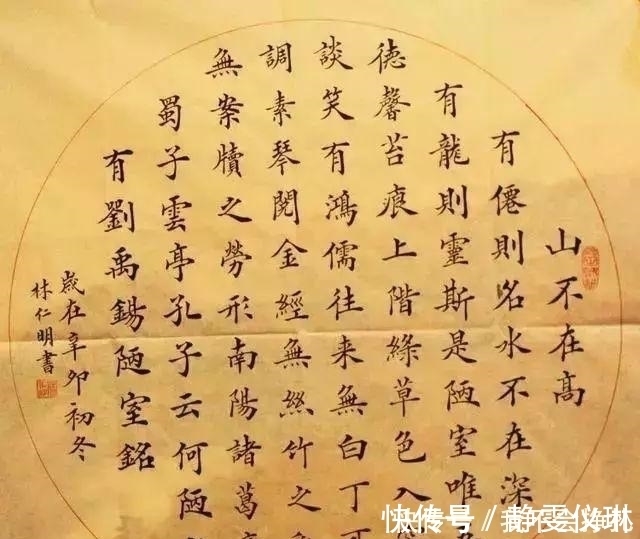 山不在高
有僊則名水不在深
有龍則靈斯是陋室唯
德馨苔痕上階綠草色入
談笑有鴻儒往来無白丁可
調素琴閱金經無絲竹之
無案牘之勞形南陽諸葛
蜀子雲亭孔子云何陋
有劉禹錫陋室銘
歲在辛卯初冬
林仁明書
快传号/静雯仪琳